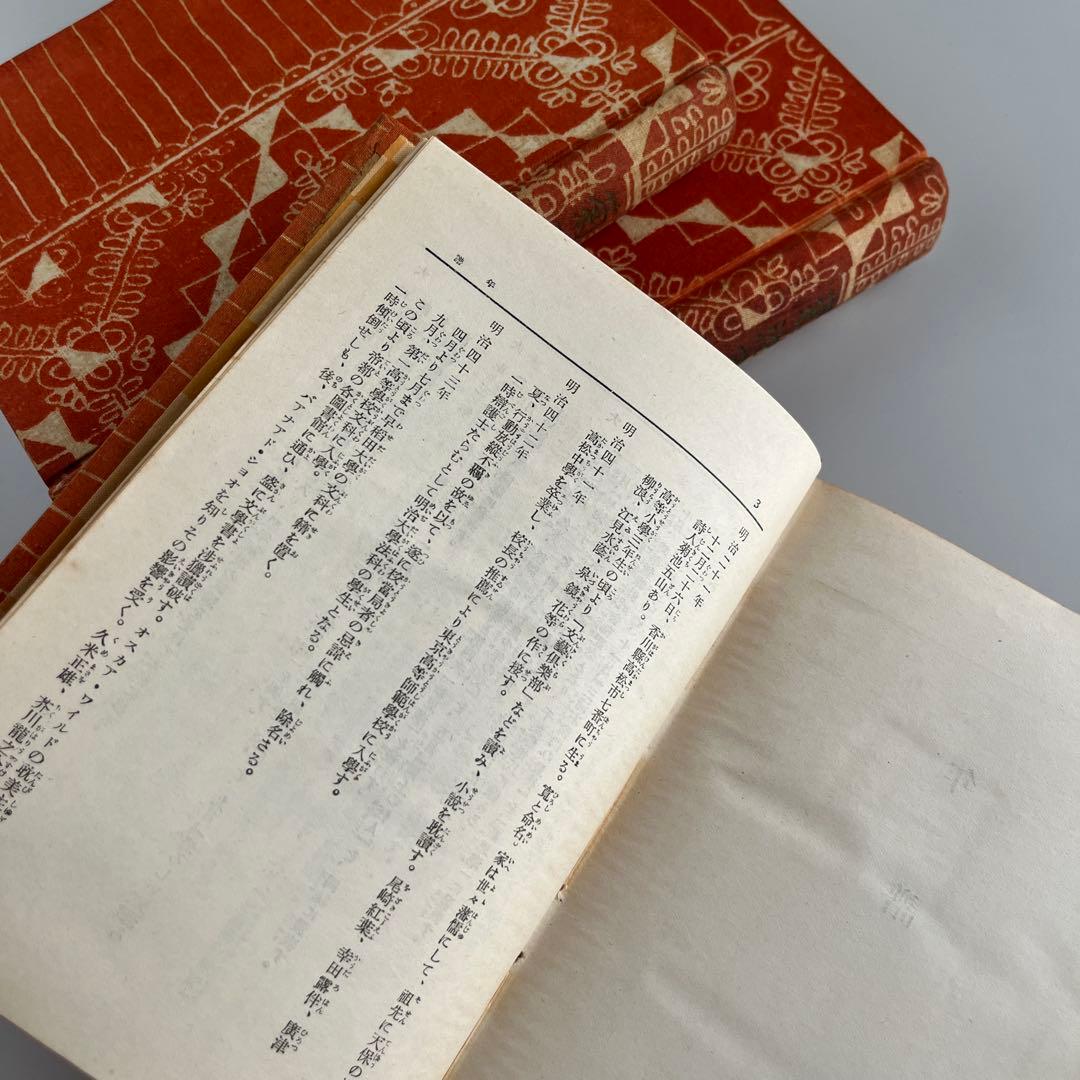 年譜
3
明治二十一年
十二月二十六日、香川縣高松市七番町に生る。寬と命名。家は世々藩儒にして、祖先に天保の
詩人菊池五山あり。
明治四十一年
高等小學三年生の頃より「文藝俱樂部」などを讀み、小說を耽讀す。尾崎紅葉、幸田露伴、廣津
柳浪、江見水蔭、泉鏡花等の作に接す。
明治四十二年
高松中學を卒業し、校長の推薦により東京高等師範學校に入學す。
夏、行動放縱不羈の故を以て、遂に校當局者の忌諱に觸れ、除名さる。
一時辯護士たらむとして明治大學法科の學生となる。
明治四十三年
四月より七月まで早稻田大學の文科に籍を置く。
九月、第一高等學校文科に入學。
この頃より帝都の各圖書館に通ひ、盛に文學書を涉獵讀破す。オスカア・ワイルドの耽美
一時傾倒せしも、後、バアナアド・ショオを知りその影響を受く。久米正雄、芥川龍之